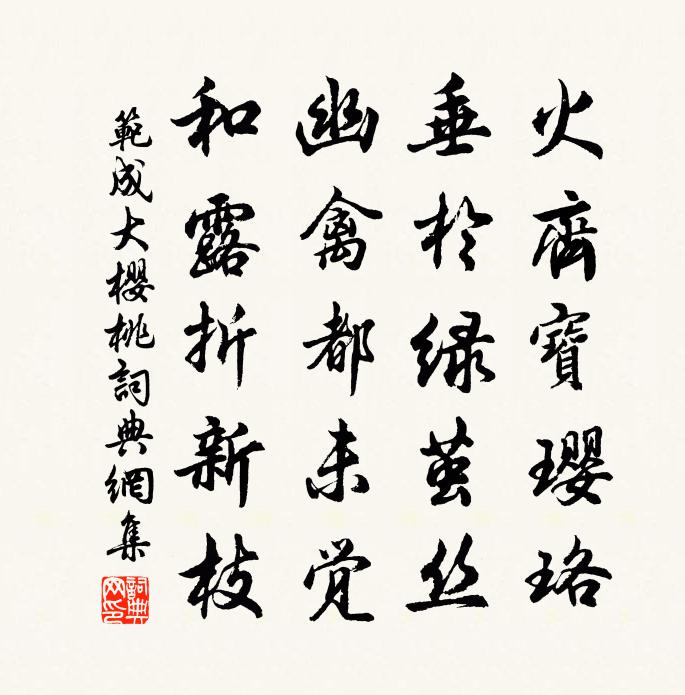 火齊寶瓔珞
垂於绿茧丝
幽禽都未覺
和露折新枝
範成大櫻桃詞典網集
詞典網印